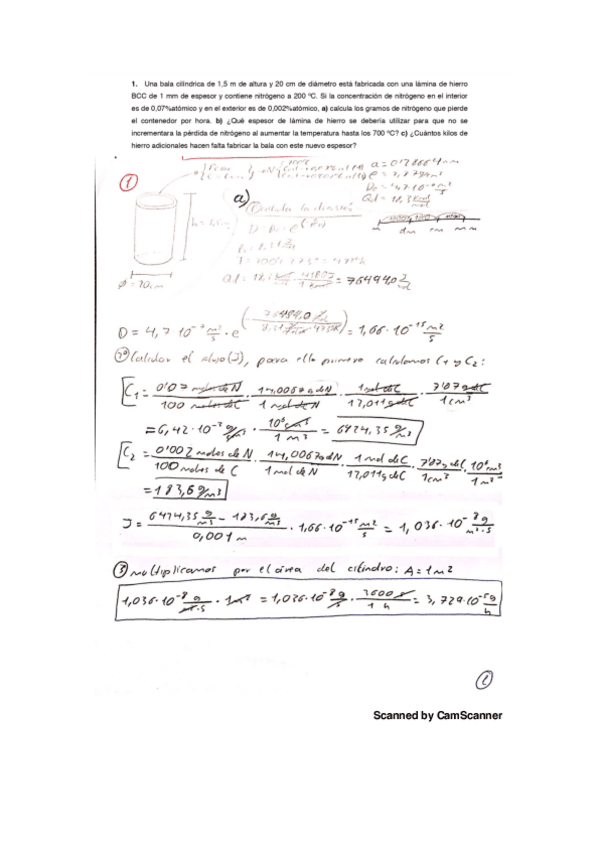 1. Una bala cilíndrica de 1,5 m de altura y 20 cm de diámetro está fabricada con una lámina de hierro
BCC de 1 mm de espesor y contiene nitrógeno a 200 ºC. Si la concentración de nitrógeno en el interior
es de 0,07%atómico y en el exterior es de 0,002%atómico, a) calcula los gramos de nitrógeno que pierde
el contenedor por hora. b) ¿Qué espesor de lámina de hierro se debería utilizar para que no se
incrementara la pérdida de nitrógeno al aumentar la temperatura hasta los 700 ºC? c) ¿Cuántos kilos de
hierro adicionales hacen falta fabricar la bala con este nuevo espesor?
1
a)
D = 4,7 10⁻⁷ m²/s · e = 1,66 · 10⁻¹⁵ m²/s
2º Calcular el flujo (J), para ello primero calculamos C1 y C2:
C1 = 0'07 moles de N / 100 moles de C · 14,0067 g de N / 1 mol de N · 1 mol de C / 12,011 g de C · 7'87 g de C / 1 cm³
= 6,42 · 10⁻³ g/cm³ · 10⁶ cm³ / 1 m³ = 6424,35 g/m³
C2 = 0'002 moles de N / 100 moles de C · 14,0067 g de N / 1 mol de N · 1 mol de C / 12,011 g de C · 7'87 g de C / 1 cm³ · 10⁶ cm³ / 1 m³
= 183,6 g/m³
J = 6424,35 g/m³ - 183,6 g/m³ / 0,001 m · 1,66 · 10⁻¹⁵ m²/s = 1,036 · 10⁻⁸ g/m²·s
3 multiplicamos por el área del cilindro: A = 1 m²
1,036 · 10⁻⁸ g/m²·s · 1 m² = 1,036 · 10⁻⁸ g/s · 3600 s / 1 h = 3,729 · 10⁻⁵ g/h
Scanned by CamScanner